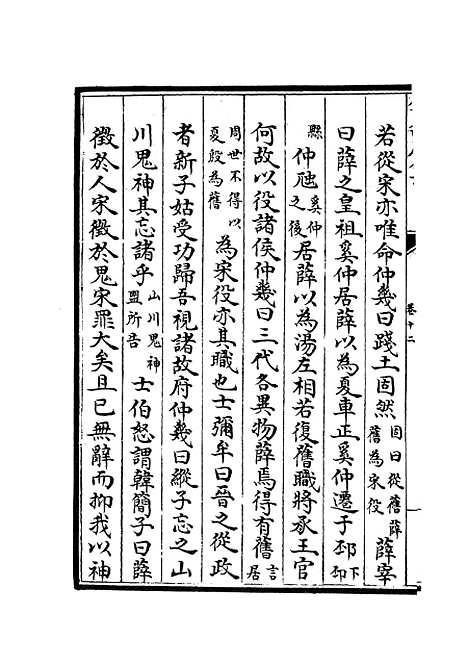 卷十二
若從宋亦唯命仲幾曰踐土固然固曰從舊薛舊為宋役薛宰
曰薛之皇祖奚仲居薛以為夏車正奚仲遷于邳下邳
縣仲虺奚仲之後居薛以為湯左相若復舊職將承王官
何故以役諸侯仲幾曰三代各異物薛焉得有舊言居
周世不得以夏殷為舊為宋役亦其職也士彌牟曰晉之從政
者新子姑受功歸吾視諸故府仲幾曰縱子忘之山
川鬼神其忘諸乎山川鬼神盟所告士伯怒謂韓簡子曰薛
徵於人宋徵於鬼宋罪大矣且已無辭而抑我以神